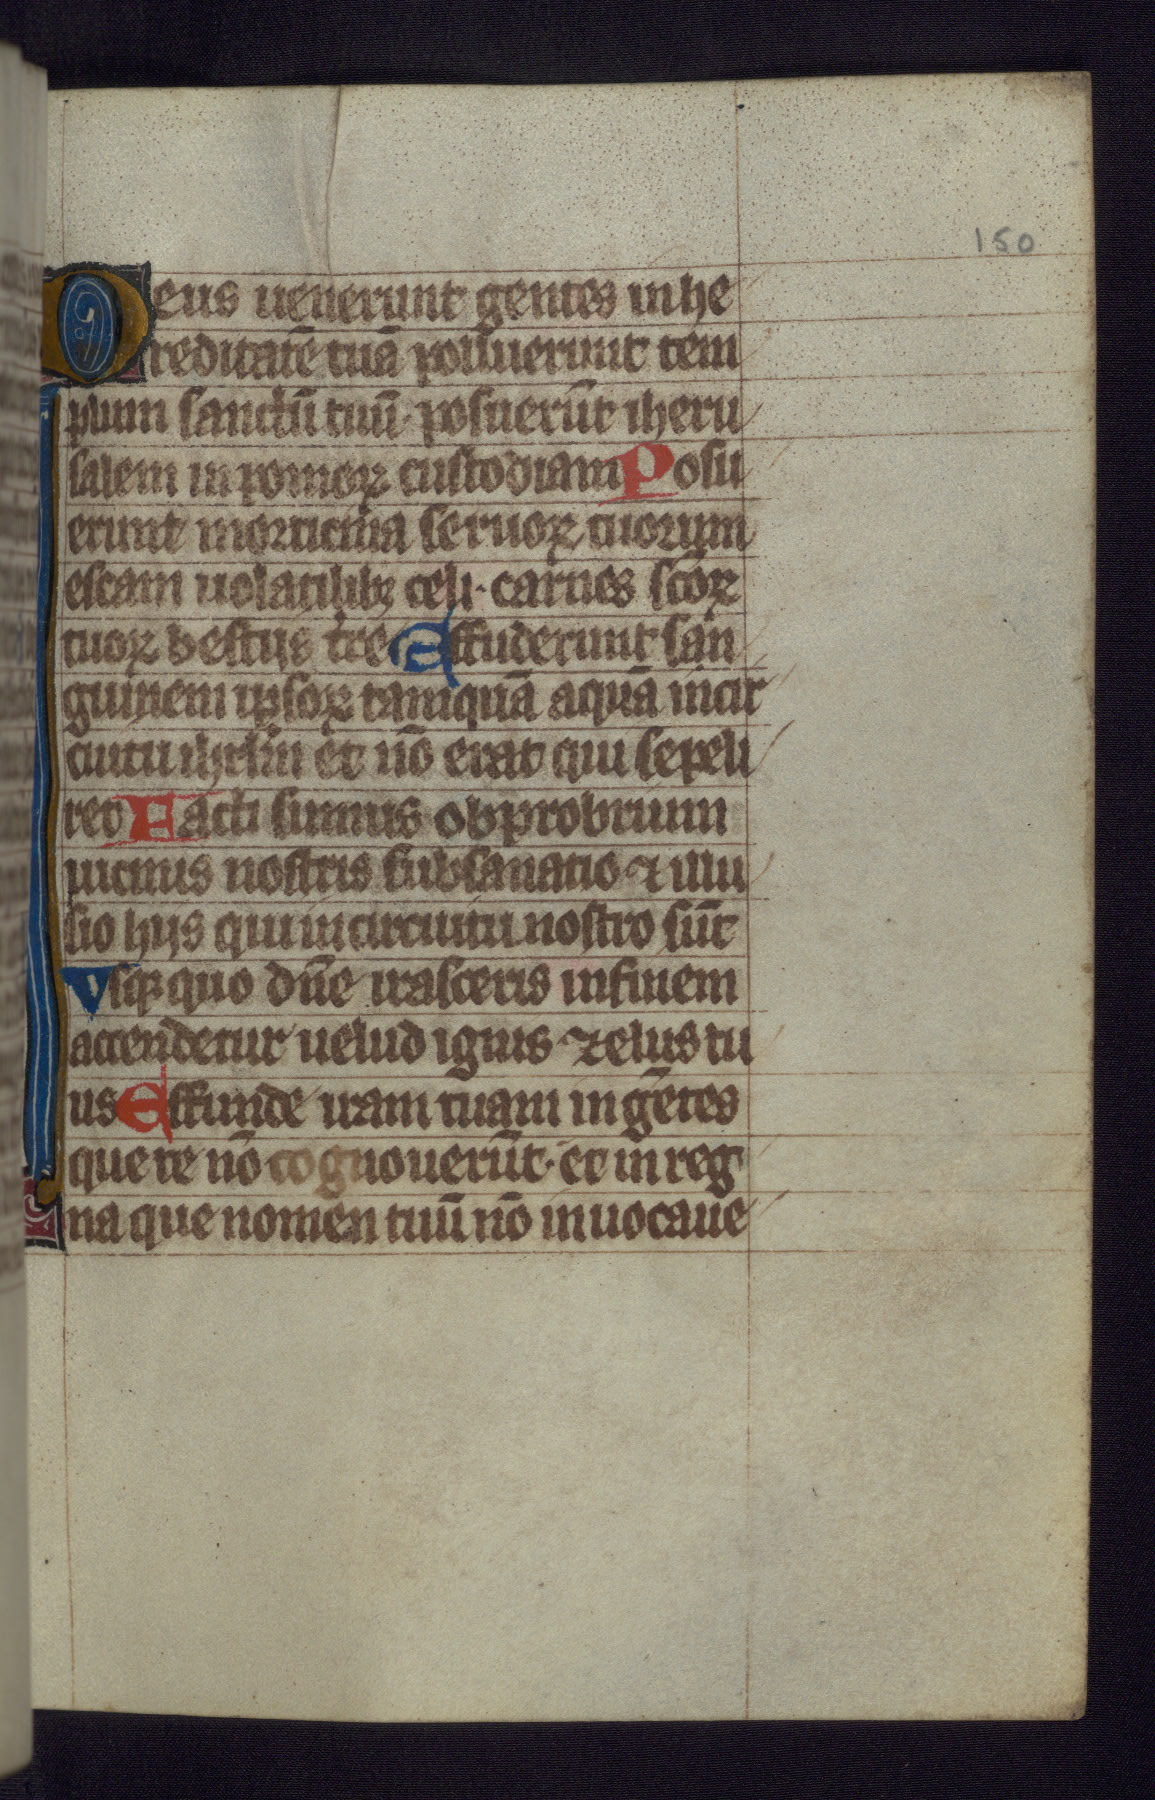 150
Deus uenerunt gentes in he
reditatē tuā polluerunt tem
plum sanctū tuū· posuerūt iheru
salem in pomoꝝ custodiam Posu
erunt morticinia seruoꝝ tuorum
escam uolatilibꝫ celi· carnes scōꝝ
tuoꝝ bestijs tre Effuderunt san
guinem ipsoꝝ tamquā aquā in cir
cuitu ihrlm̄ et nō erat qui sepeli
ret Facti sumus obprobrium
uicinis nostris subsanatio ⁊ illu
sio hijs qui in circuitu nostro sūt
Vsqꝫ quo dn̄e irasceris in finem
accendetur uelud ignis zelus tu
us Effunde iram tuam in gētes
que te nō cognouerūt· et in reg
na que nomen tuū nō inuocaue